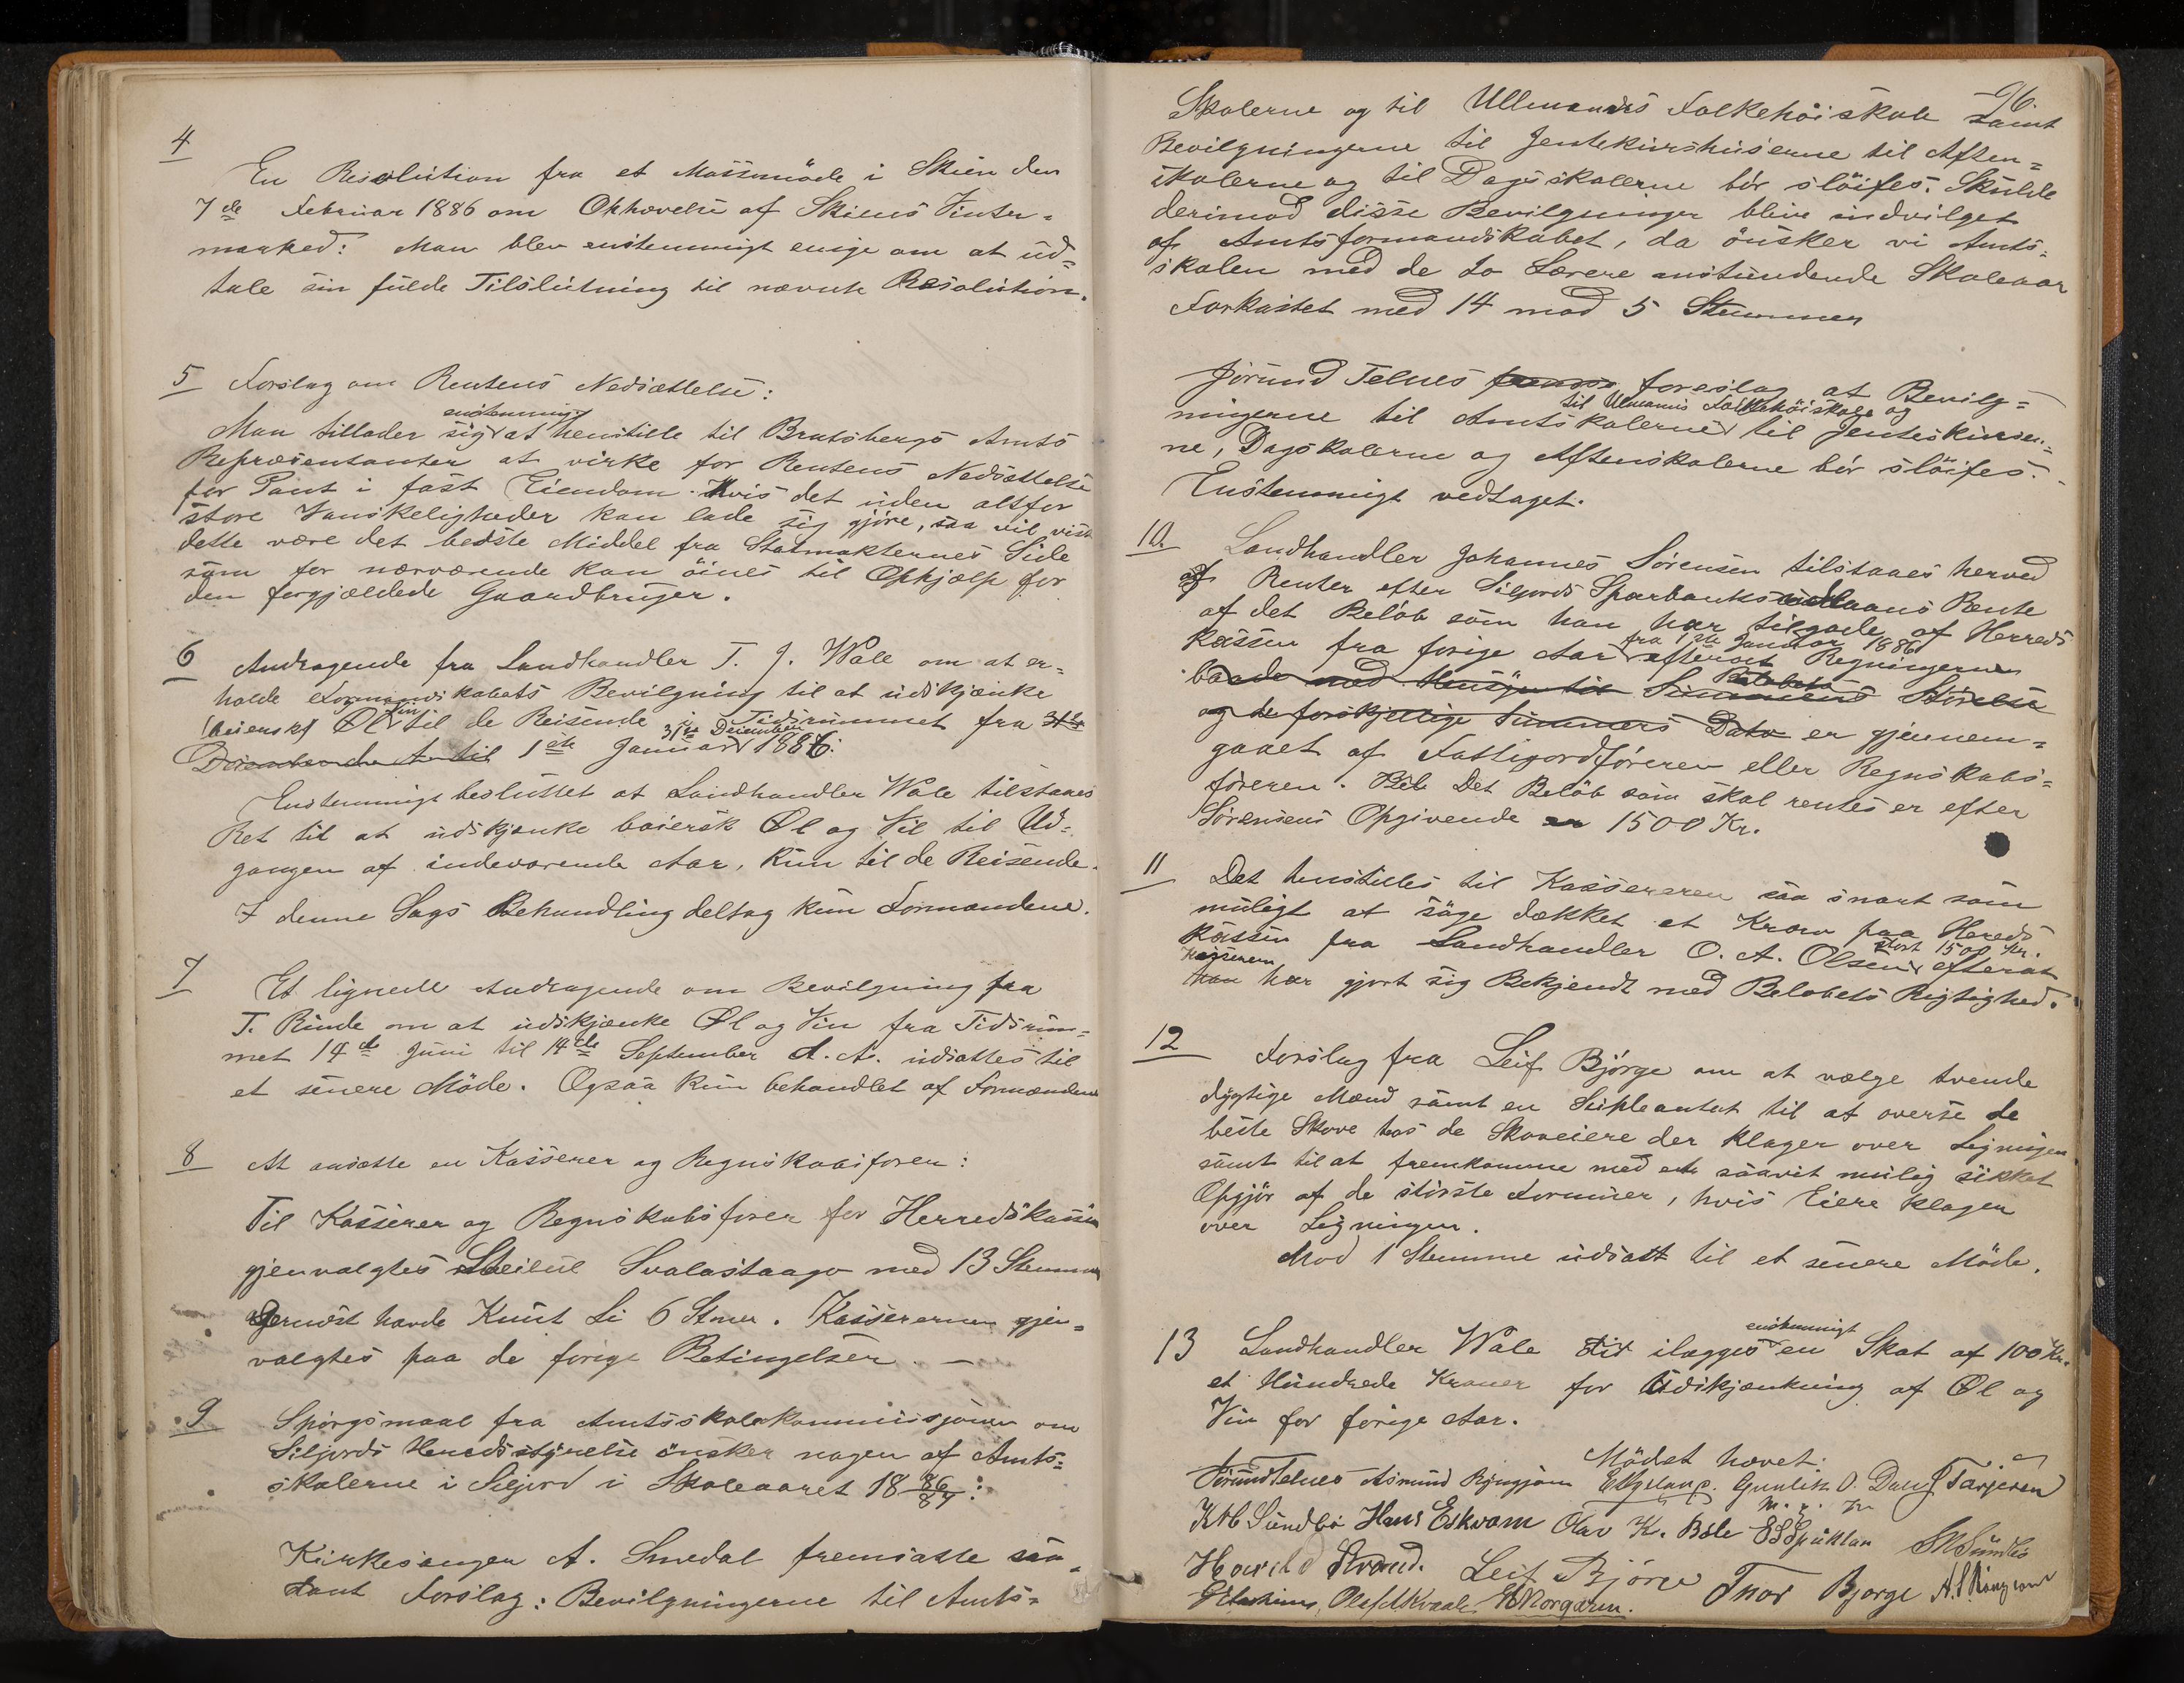 4
En Resolution fra et Massemöde i Skien den
7de Februar 1886 om Ophævelse af Skiens Vinter=
marked: Man blev enstemmigt enige om at ud=
tale sin fulde Tilslutning til nævnte Resolution.
5 Forslag om Rentens Nedsættelse:
enstemmigt
Man tillader sig at henstille til Bratsbergs Amts
Repræsentanter at virke for Rentens Nedsettelse
for Pant i fast Eiendom. Hvis det uden altfor
store Vanskeligheder kan lade sig gjöre, saa vil vist
dette være det bedste Middel fra Statmakternes Side
som for nærværende kan öines til Ophjælp for
den forgjældede Gaardbruger.
6 Andragende fra Landhandler T. J. Wale om at er=
holde Formandskabets Bevilgning til at udskjænke
Vin
(baiersk) Øl til de Reisende i Tidsrummet fra 31te
31te December
December til 1ste Januar 1886:
Enstemmigt besluttet at Landhandler Wale tilstaaes
Ret til at udskjænke baiersk Øl og Vil til Ud=
gangen af indeværende Aar, kun til de Reisende.
I denne Sags Behandling deltog kun Formændene.
7 Et lignede Andragende om Bevilgning fra
T. Rinde om at udskjænke Øl og Vin fra Tidsrum=
met 14de Juni til 14de September d. A. udsættes til
et senere Möde. Ogsaa kun behandlet af Formændene
8 At ansætte en Kasserer og Regnskabsforer:
Til Kasserer og Regnskabsforer for Herredskassen
gjenvalgtes Sveinul Svalastaago med 13 Stemmer
Dernæst havde Knut Li 6 Stmer. Kassereren gjen=
valgtes paa de forige Betingelser. —
9 Spörgsmaal fra Amtsskolekommissjonen om
Siljords Herredsstyrelse önsker nogen af Amts=
skolerne i Siljord i Skoleaaret 18 86/87:
Kirkesanger A. Smedal fremsatte saa=
dant Forslag: Bevilgningerne til Amts=
96.
Skolerne og til Ullmanns Folkehöiskole samt
Bevilgningerne til Jentekurshuserne til Aften=
skolerne og til Dagsskolerne bör slöifes. Skulde
derimod disse Bevilgninger blive indvilget
af Amtsformandskabet, da önsker vi Amts=
skolen med de to Lærere anstundende Skoleaar
Forkastet med 14 mod 5 Stemmer
Jörund Telnes foreslog at Bevilg=
til Ulmanns Folkehöiskole og
ningerne til Amtskolerne til Jenteskurser=
ne, Dagskolerne og Aftenskolerne bör slöifes.
Enstemmigt vedtaget.
10. Landhandler Johannes Sörensen tilstaaes herved
af Renter efter Siljords Sparbanks Rente
af det Belöb som han har tilgode af Herreds
fra 1ste Januar 1886
kassen fra forige Aar efterat Regningerne
Belobets
baade med Hensyn til Summens Störelse
og de forskjellige Summers Dato er gjennem=
gaaet af Fattigordföreren eller Regnskabs=
föreren. Det Belöb som skal rentes er efter
Sörensens Opgivende 1500 Kr.
11 Det henstilles til Kassereren saa snart som
muligt at söge dækket et Krav paa Hereds
stort 1500 Kr.
kassen fra Landhandler O. A. Olsen efterat
Kassereren
han har gjort sig Bekjendt med Belobets Rigtighed.
12 Forslag fra Leif Björge om at vælge tvende
dygtige Mænd samt en Supleantet til at overse de
beste Skove hos de Skoveiere der klager over Ligningen
samt til at fremkomme med et saavit mulig sikket
Opgjör af de störste Formuer, hvis Eiere klager
over Ligningen.
Mod 1 Stemme udsatt til et senere Möde.
enstemmigt
13 Landhandler Wale ilægges en Skat af 100 Kr.
et Hundrede Kroner for Udskjænkning af Øl og
Vin for forige Aar.
Mödet hævet.
Jörund Telnes Asmund Gunlik O. Dale J Tarjesen
m. p.
K H Sundbö Hans Eskvam Olav K. Böle SHSundbö
Harald Strand. Leif Björge Thor Bjorge